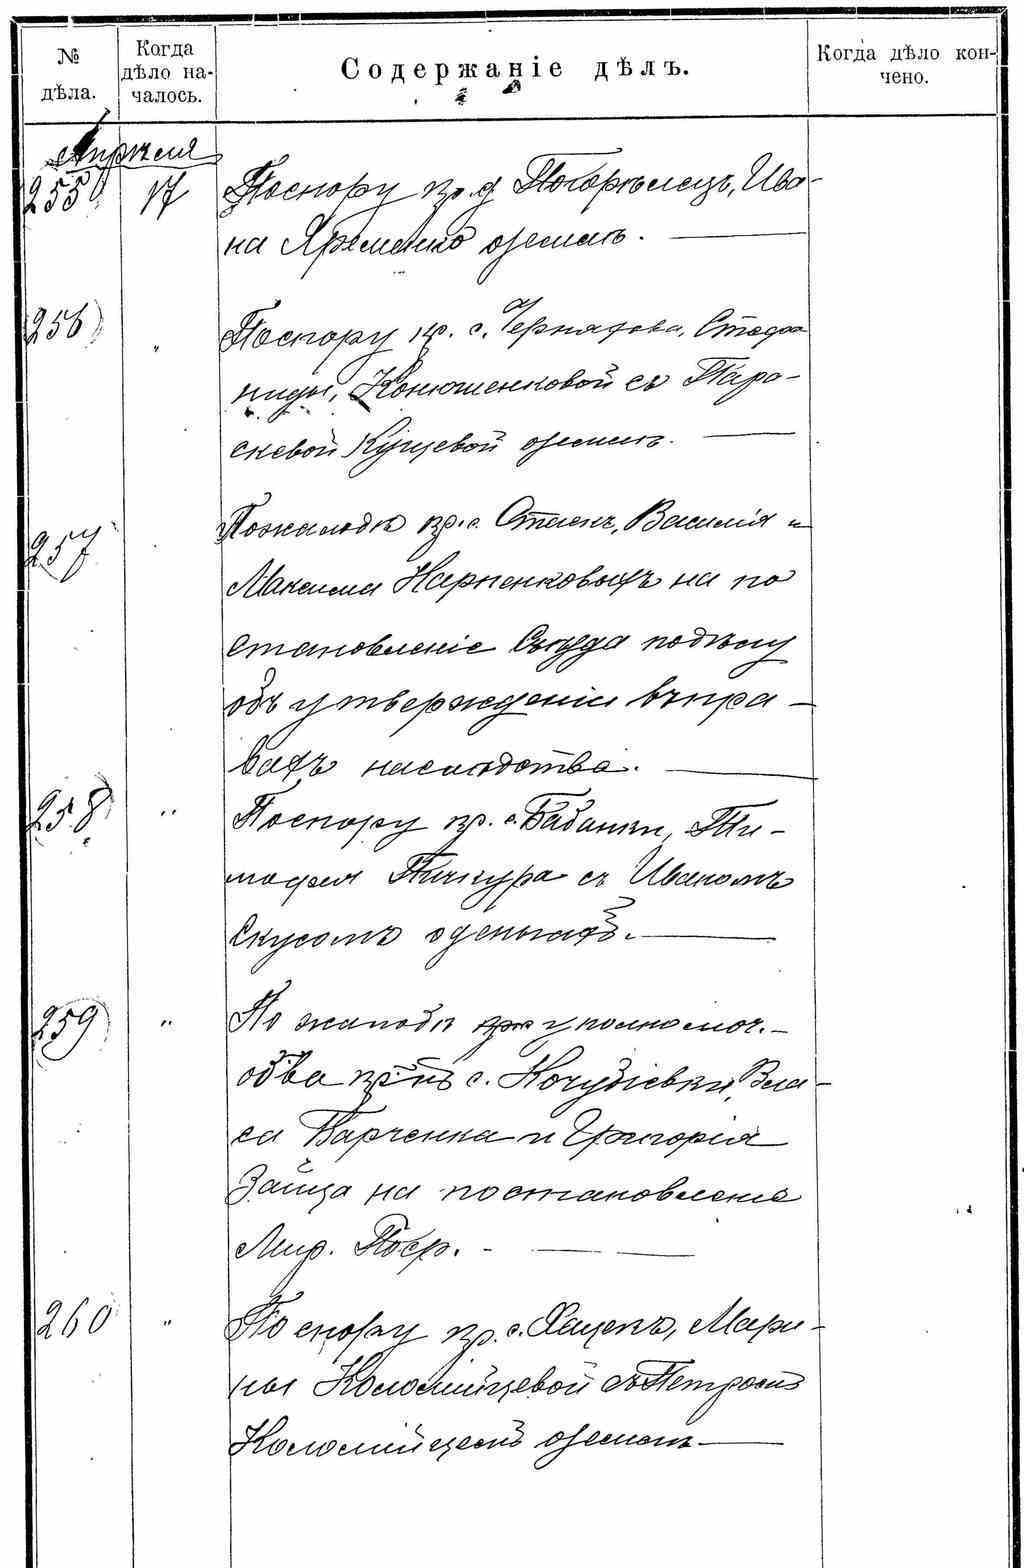 № дѣла.
Когда дѣло на-
чалось.
Содержаніе дѣлъ.
Когда дѣло кон-
чено.
Апрѣля
255 17 По спору кр. д Погорѣлецъ, Ива-
на Яременко о землѣ.
256 " По спору кр. с. Стефа
ниды, Конюшенковой съ Пара-
скевой Кущевой о землѣ.
257 По жалобѣ кр. с. Василія и
Максима Карпенковыхъ на по
становленіе Съѣзда по дѣлу
объ утвержденіи въ пра-
вахъ наслѣдства.
258 " По спору кр. с. Бабанки, Ти-
мофея Тичкура съ Иваномъ
Скусомъ о деньгахъ.
259 " По жалобѣ уполномоч.-
об-ва кр-нъ с. Кочубіевки, Вла-
са Варченка и Григорія
Заица на постановленіе
Мир. Поср.
260 " По спору кр. с. Хащевъ, Мари-
ны Коломійцевой съ Петромъ
Коломійцемъ о землѣ